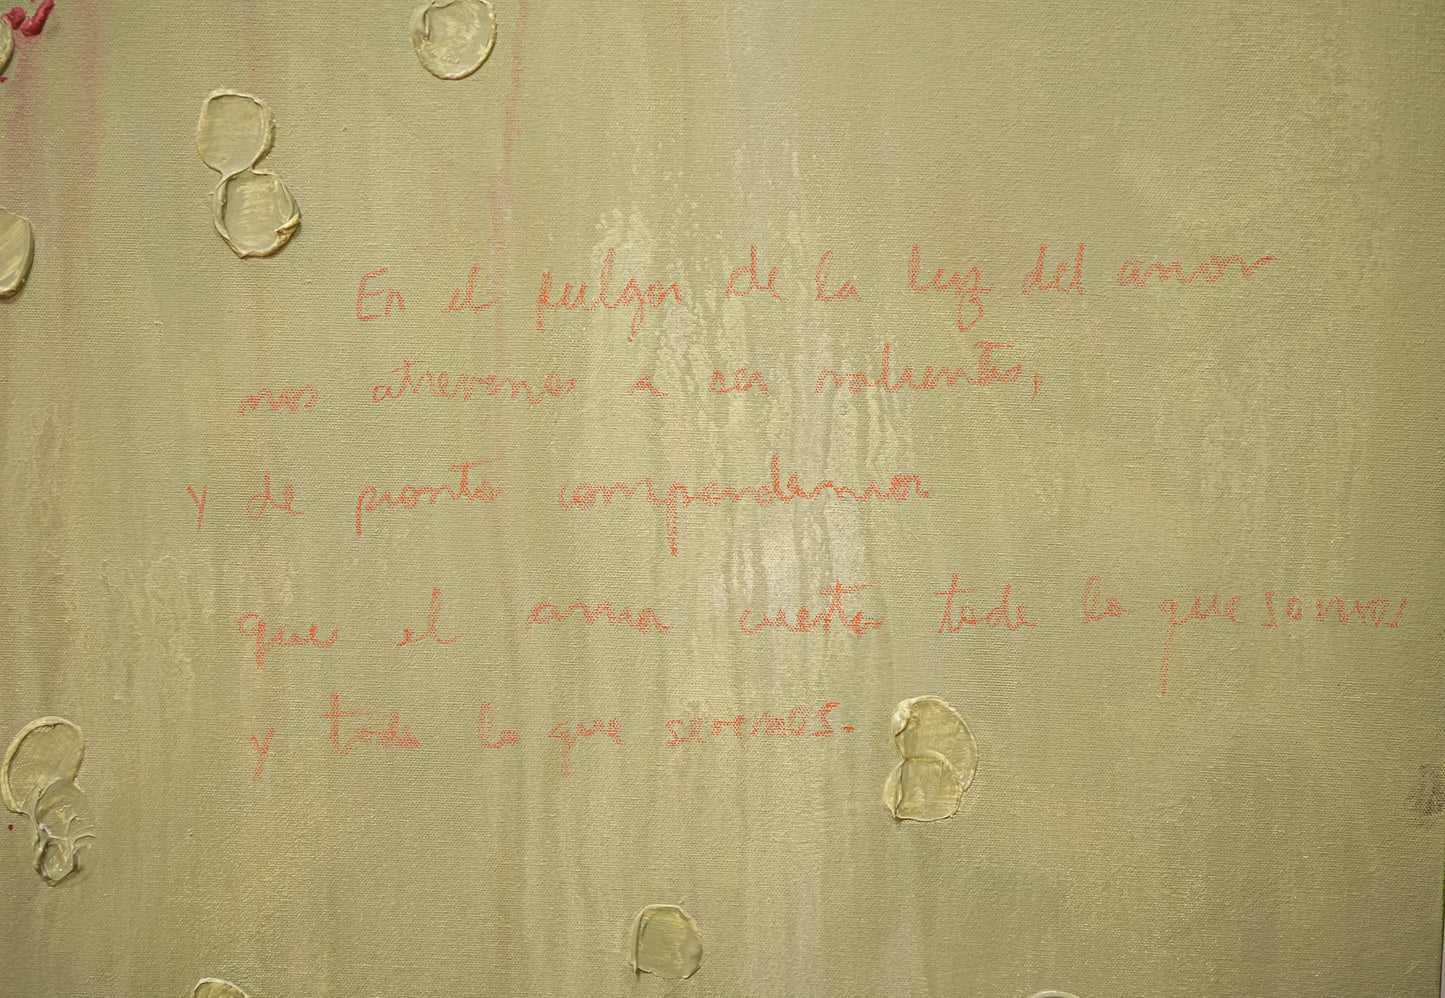 En el fulgor de la luz del amor
nos atrevemos a ser valientes,
y de pronto comprendemos
que el amor cuesta todo lo que somos
y todo lo que seremos.